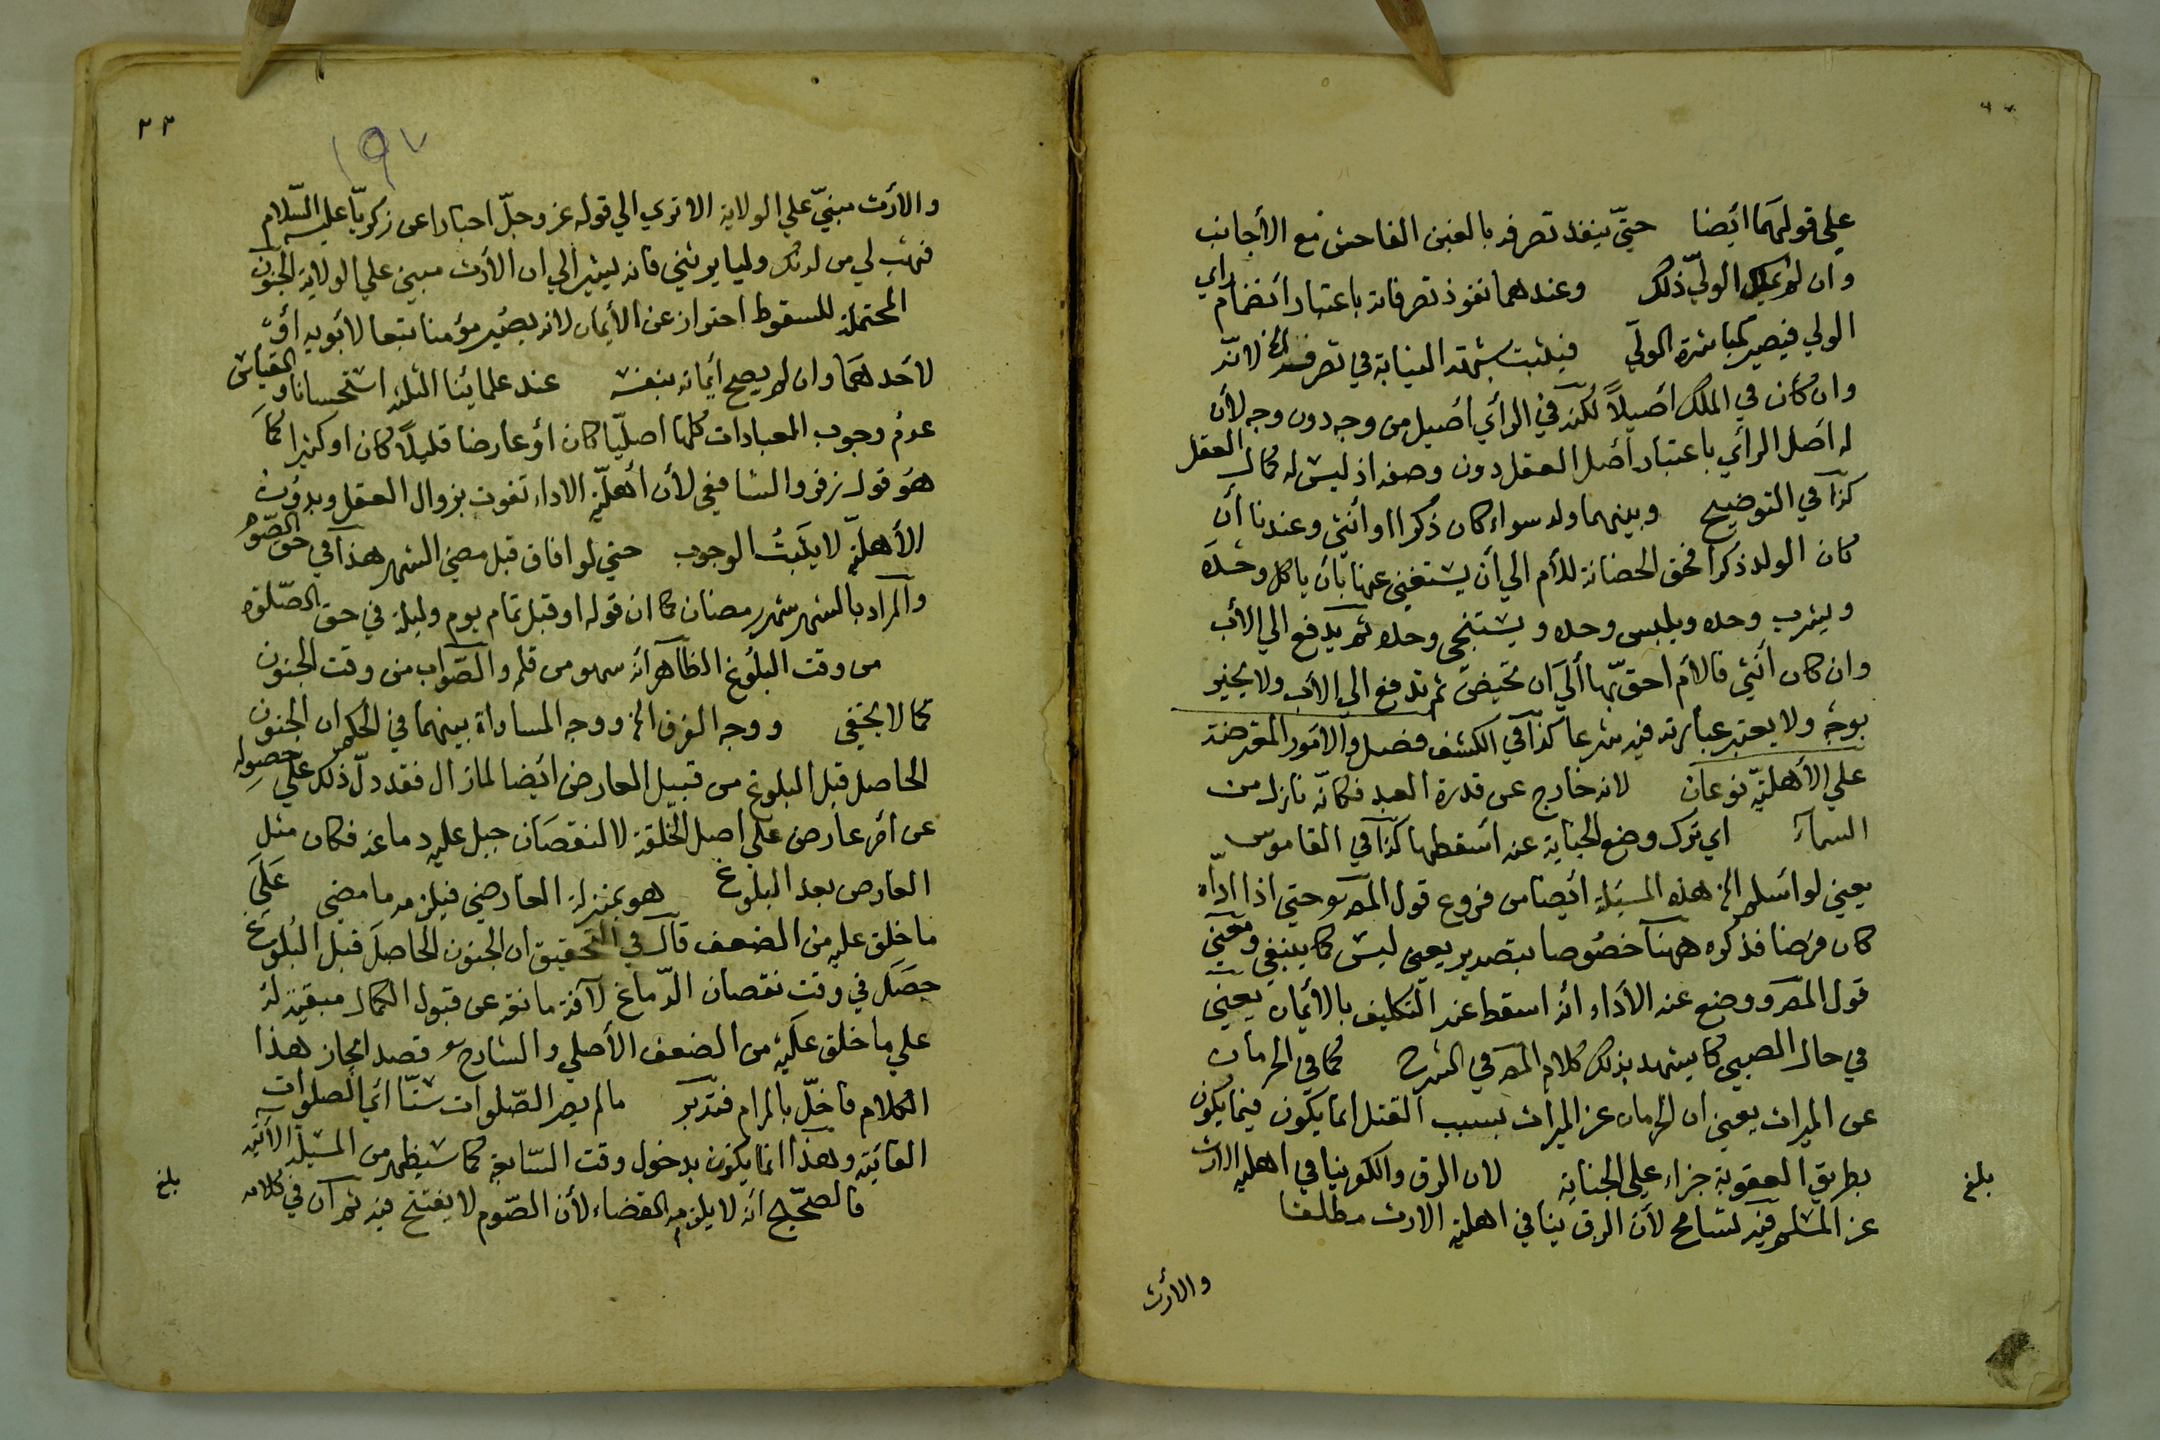 علي قولهما ايضا حتي ينفذ تصرفه بالغبن الفاحش مع الأجانب
وان لم يملك الولي ذلك وعندهما نفوذ تصرفاته باعتبار انضمام راي
الولي فيصير كمباشرة الولي فيثبت شبهة النيابة في تصرفه الخ لانه
وان كان في الملك أصيلاً لكنه في الرأي أصيل من وجه دون وجه لأن
له أصل الرأي باعتبار أصل العقل دون وصفه اذ ليس له كمال العقل
كذا في التوضيح وبينهما ولد سواء كان ذكرا او أنثي وعندنا أن
كان الولد ذكرا فحق الحضانة للأم الي أن يستغني عنها بأن ياكل وحده
ويشرب وحده ويلبس وحده ويستنجي وحده ثم يدفع الي الأب
وان كان أنثي فالأم احق بها ألي ان تحيض ثم تدفع الي الأب ولا يخير
بوجه ولا يعتبر عبارته فيه شرعا كذا في الكشف فصل والامور المعترضة
علي الأهلية نوعان لانه خارج عن قدرة العبد فكانه نازل من
السماء اي ترك وضع الجناية عنه أسقطها كذا في القاموس
يعني لو اسلم الخ هذه المسئلة ايضا من فروع قول المص حتي اذا اداه
كان فرضا فذكره ههنا خصوصا بتصدير يعني ليس كما ينبغي ومعني
قول المص ووضع عنه الأداء انه اسقط عنه التكليف بالأيمان يعني
في حال الصبي كما يشهد بذلك كلام المص في الشرح كما في الحرمان
عن الميراث يعني ان الحرمان عن الميراث بسبب القتل انما يكون فيما يكون
بطريق العقوبة جزاء علي الجناية لان الرق والكفر ينافي اهلية الارث
بلغ
عن المسلم فيه تسامح لأن الرق ينافي اهلية الارث مطلقا
والأرث
٣٣
١٩٧
والأرث مبني علي الولاية الا تري الي قوله عز وجل اخبارا عن زكريا عليه السلام
فهب لي من لدنك وليا يرثني فانه يشير الي ان الأرث مبني علي الولاية الجنون
المحتملة للسقوط احتراز عن الأيمان لانه يصير مؤمنا تبعا لأبويه أو
لأحدهما وان لم يصح أيمانه بنفسه عند علمائنا الثلثة استحسانا والقياس
عدم وجوب العبادات كلها اصليا كان أو عارضا قليلاً كان او كثيرا كما
هو قول زفر والشافعي لأن أهلية الاداء تفوت بزوال العقل وبدون
الأهلية لا يثبت الوجوب حتي لو افاق قبل مضي الشهر هذا في حق الصوم
والمراد بالشهر شهر رمضان كما ان قوله او قبل تمام يوم وليلة في حق الصلوة
من وقت البلوغ الظاهر انه سهو من قلمه والصواب من وقت الجنون
كما لا يخفي ووجه الفرق الخ ووجه المساواة بينهما في الحكم ان الجنون
الحاصل قبل البلوغ من قبيل العارض ايضا لما زال فقد دل ذلك علي حصوله
عن أمر عارض علي اصل الخلقة لا لنقصان جبل عليه دماغه فكان مثل
العارض بعد البلوغ هو بمنزلة العارضي فيلزمه ما مضي علي
ما خلق عليه من الضعف قال في التحقيق ان الجنون الحاصل قبل البلوغ
حصل في وقت نقصان الدماغ لآفة مانعة عن قبول الكمال مبقية له
علي ما خلق عليه من الضعف الأصلي والشارح قصد ايجاز هذا
الكلام فاخل بالمرام فتدبر ما لم يصر الصلوات ستا أي الصلوات
الفائتة وهذا انما يكون بدخول وقت السابعة كما سيظهر من المسئلة الآتية
فالصحيح انه لا يلزمه القضاء لأن الصوم لا يفتتح فيه ثم ان في كلامه
بلغ